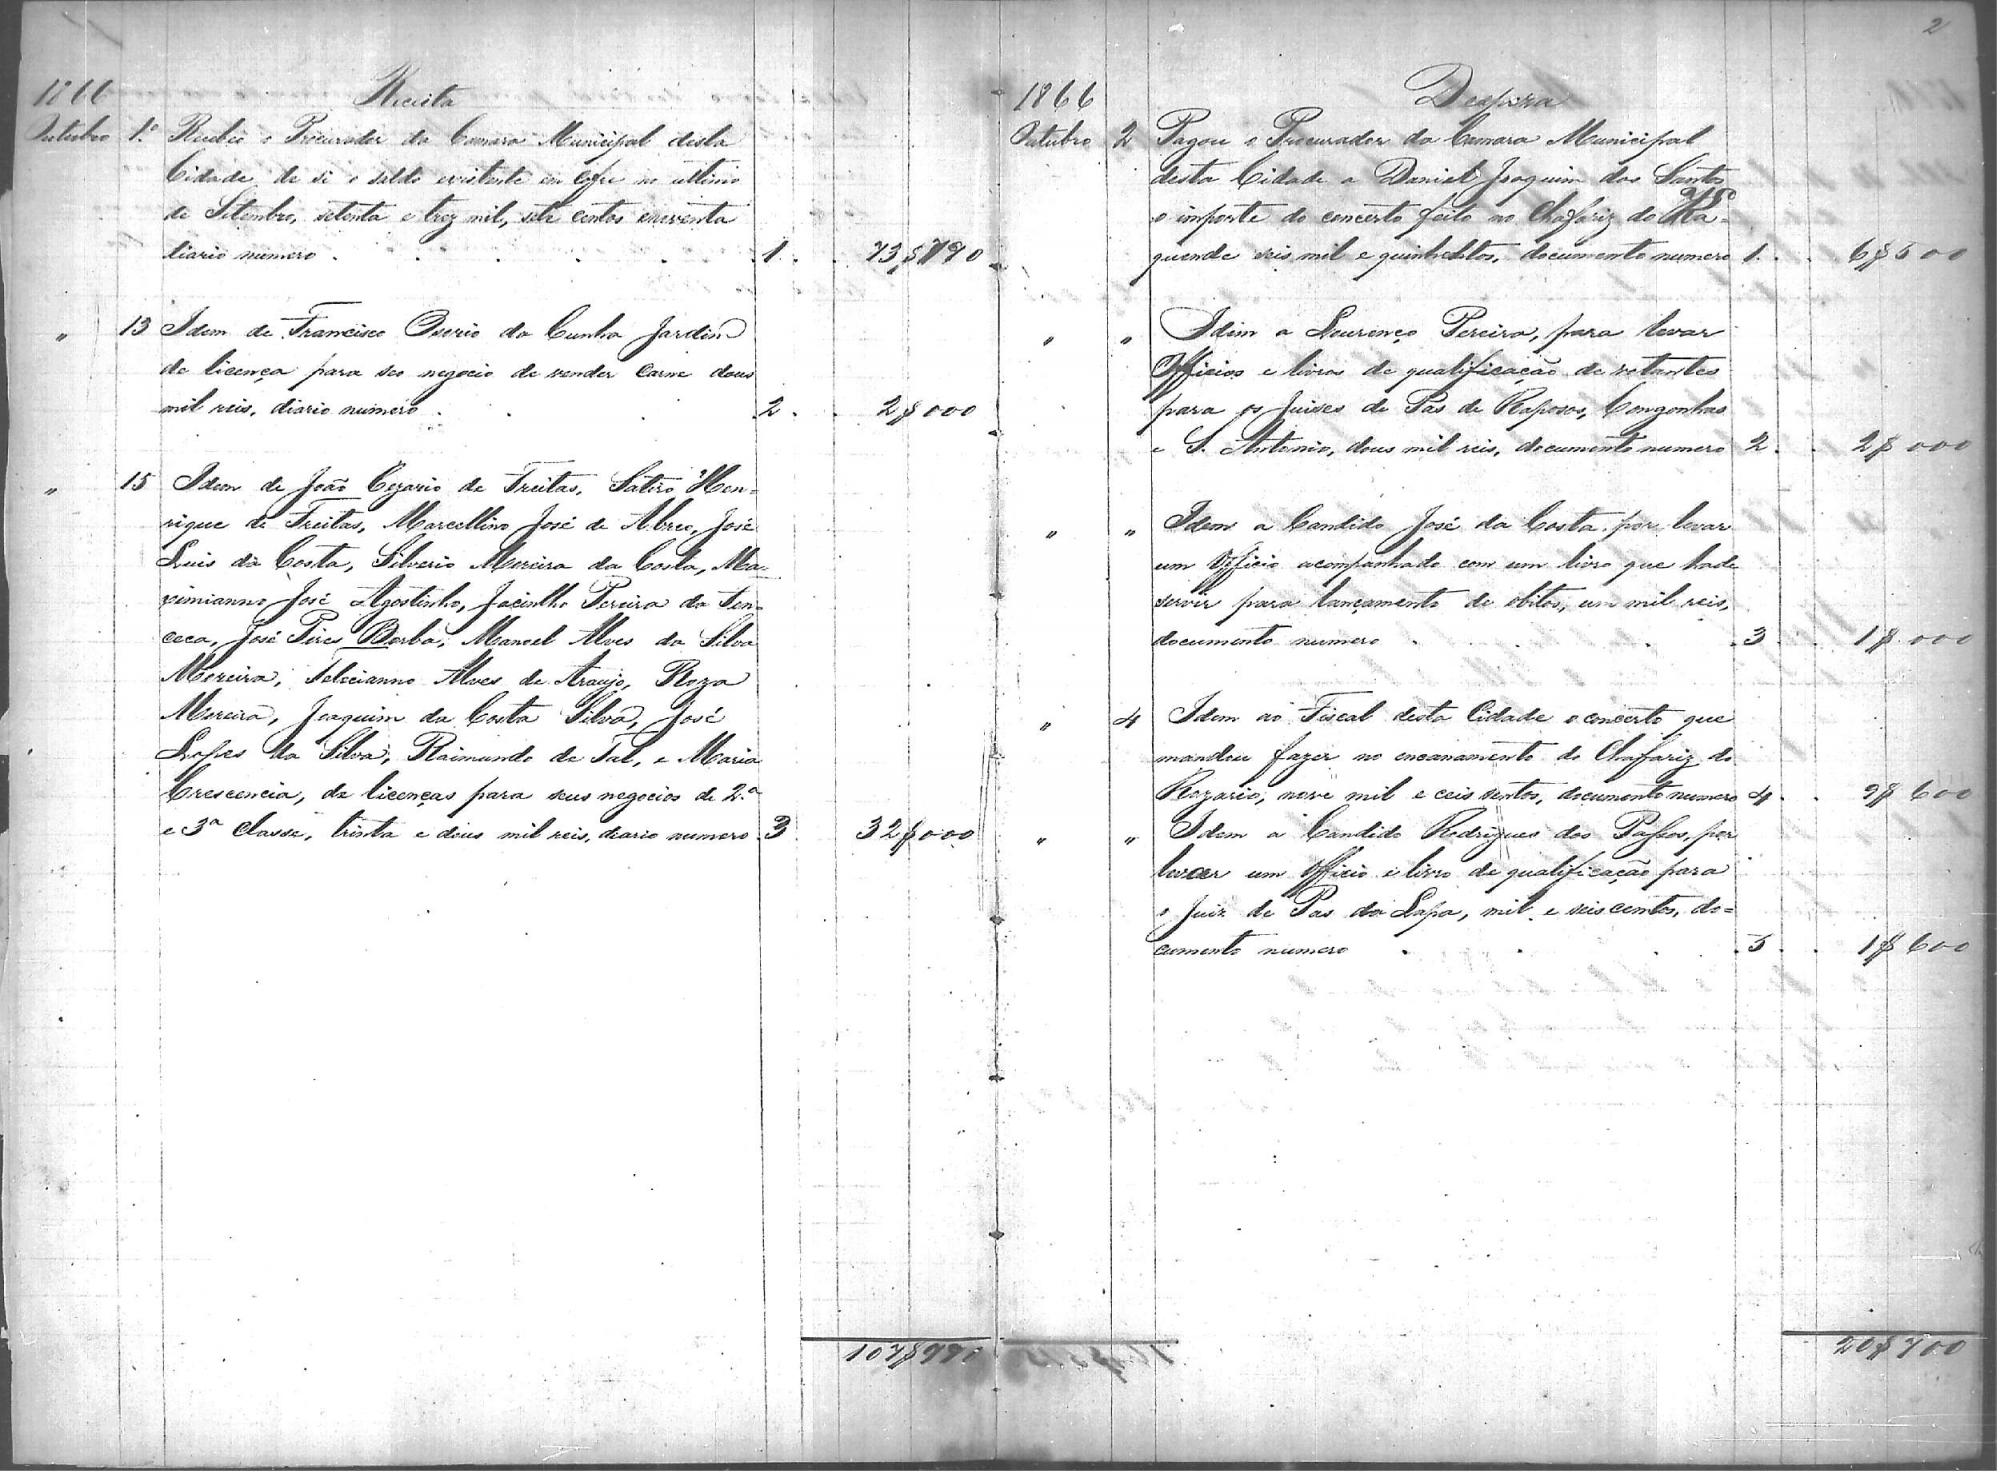 1866 Receita
Outubro 1.º Recebeo o Procurador da Camara Municipal desta
Cidade de si o saldo existente em cofre no ultimo
de Setembro, setenta e trez mil, sete centos enoventa
diario numero . . . . . 1 . . 73$790
" 13 Idem de Francisco Ozorio da Cunha Jardim
de licença para seo negocio de vender carne dous
mil reis, diario numero . . . 2 . . 2$000
" 15 Idem de João Cezario de Freitas, Satiro Hen=
rique de Freitas, Marcellino José de Abreo, José
Luis da Costa, Silverio Moreira da Costa, Ma=
ximianno José Agostinho, Jacintho Pereira da Fon=
ceca, José Pires Borba, Manoel Alves da Silva
Moreira, Felecianno Alves de Araujo, Roza
Moreira, Joaquim da Costa Silva, José
Lopes da Silva, Raimundo de Tal, e Maria
Crescencia, de licenças para seus negocios de 2.ª
e 3ª classe, trinta e dous mil reis, diario numero 3 32$000
107$790
2
1866 Despeza
Outubro 2 Pagou o Procurador da Camara Municipal
desta Cidade a Daniel Joaquim dos Santos
o importe do concerto feito no Chafariz do Ka=
quende seis mil e quinhentos, documento numero 1 . . 6$500
" " Idem a Lourenço Pereira, para levar
Officios e livros de qualificação de votantes
para os Juises de Pas de Raposos, Congonhas
e S. Antonio, dous mil reis, documento numero 2 . . 2$000
" " Idem a Candido José da Costa por levar
um Officio acompanhado com um livro que hade
servir para lançamento de obitos, um mil reis,
documento numero . . . . 3 . . 1$000
" 4 Idem ao Fiscal desta Cidade o concerto que
mandou fazer no encanamento do Chafariz do
Rozario, nove mil e ceis sentos, documento numero 4 . . 9$600
" " Idem a Candido Rodrigues dos Passos, por
levar um Officio e livro de qualificação para
o Juiz de Pas da Lapa, mil e seis centos, do=
cumento numero . . . . 5 . . 1$600
20$700